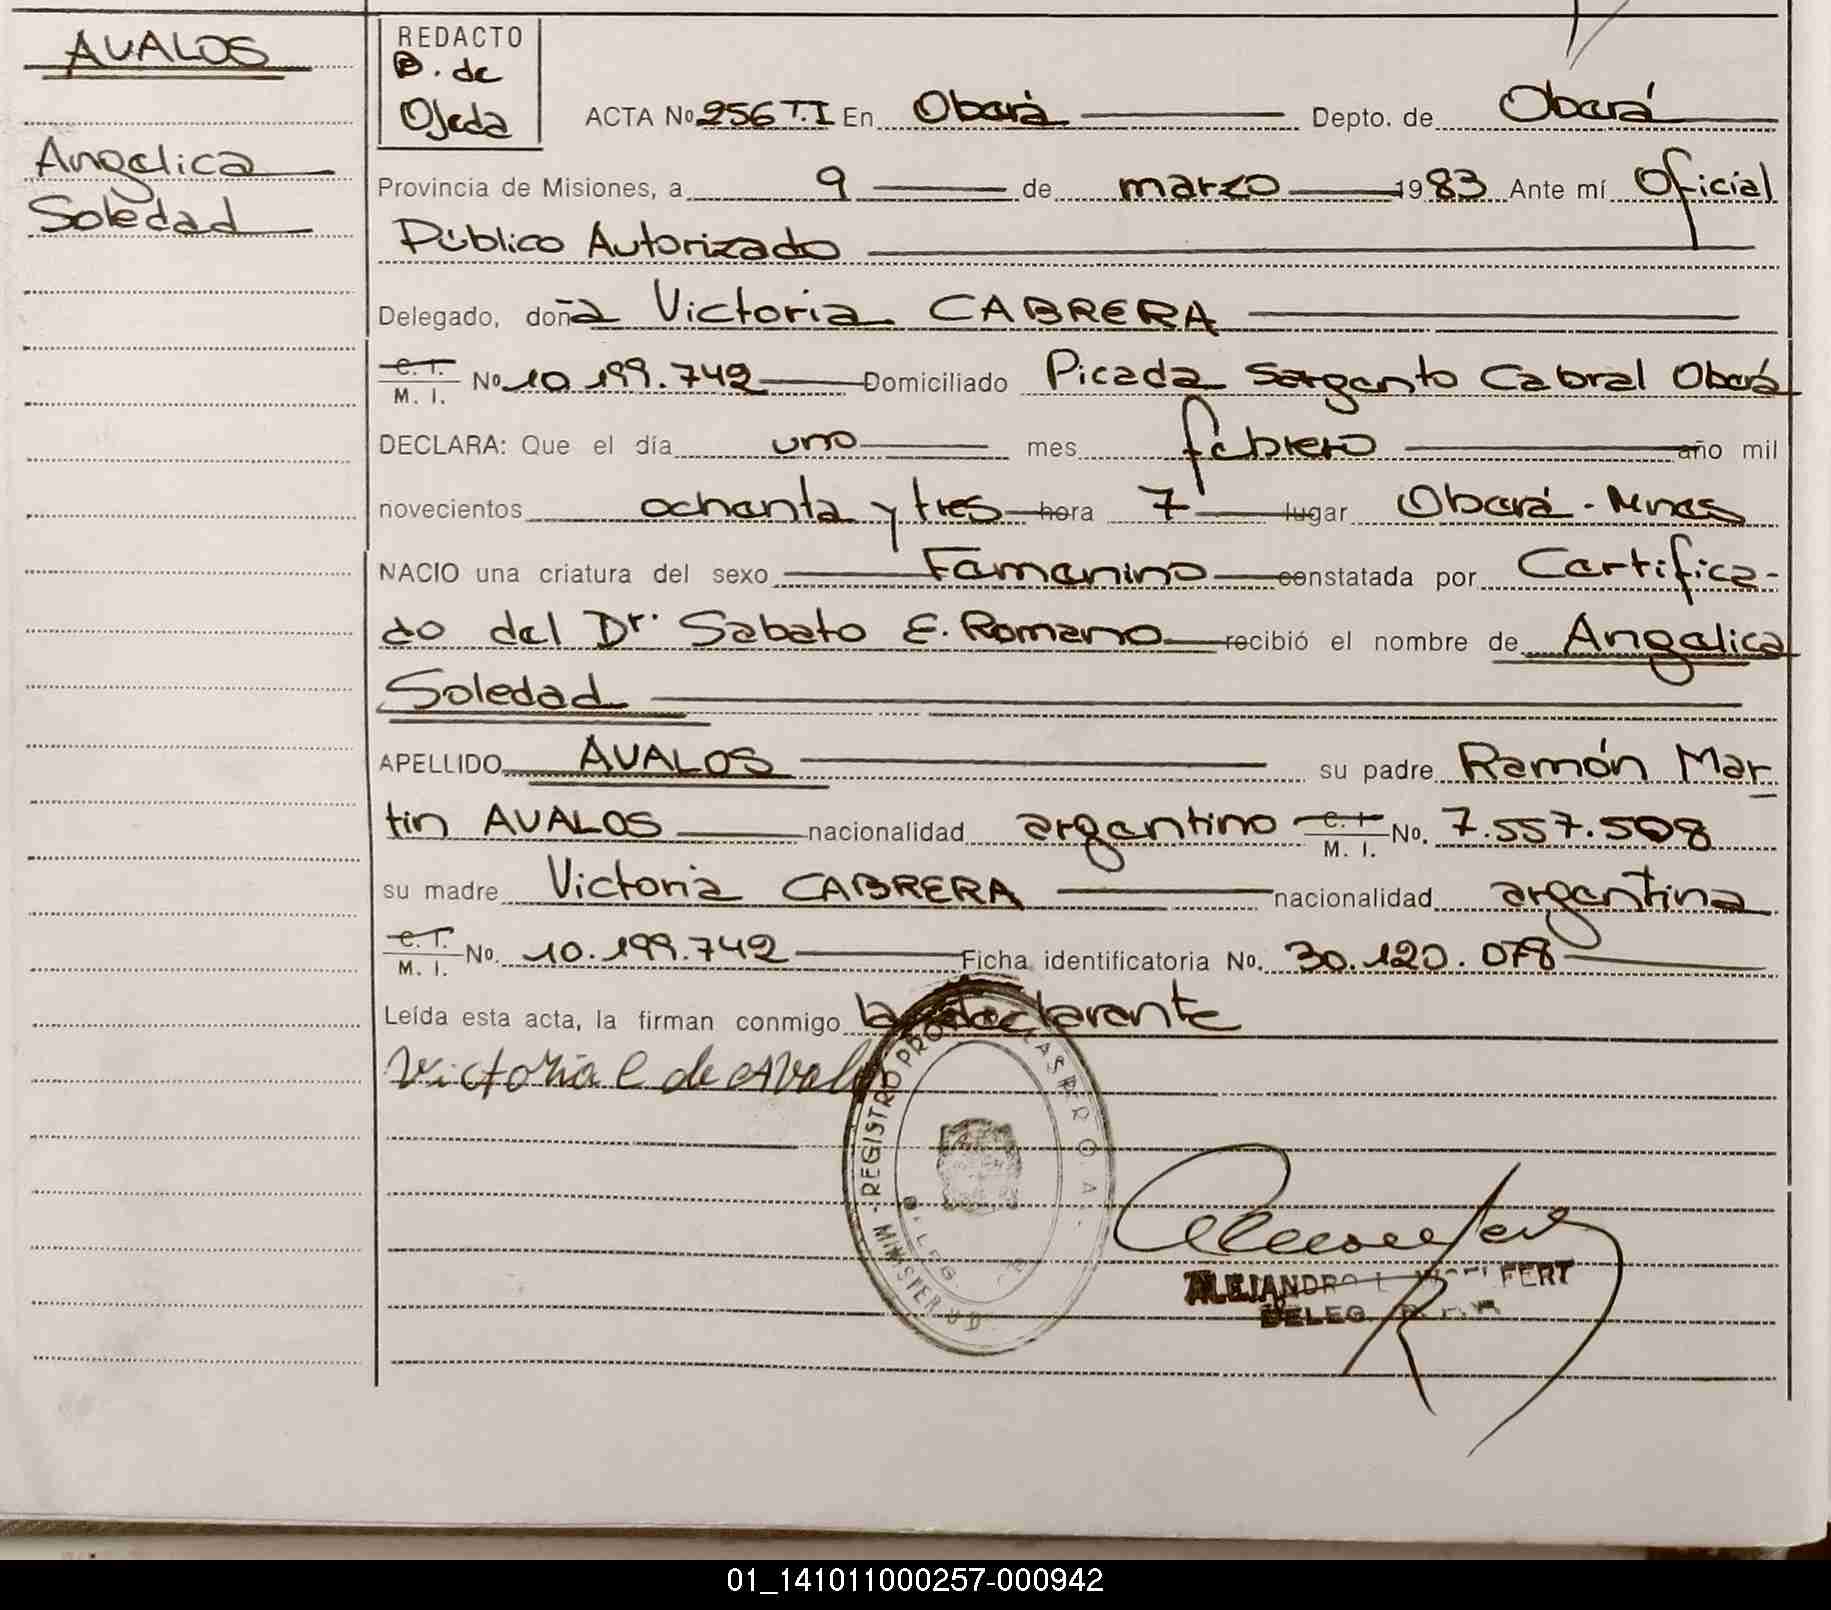 AVALOS
Angelica
Soledad
REDACTO
B. de
Ojeda
ACTA No 256 T.I En Oberá Depto. de Oberá
Provincia de Misiones, a 9 de marzo 1983 Ante mí Oficial
Público Autorizado
Delegado, doña Victoria CABRERA
C.T. M. I. No 10.199.742 Domiciliado Picada Sargento Cabral Oberá
DECLARA: Que el día uno mes febrero año mil
novecientos ochenta y tres hora 7 lugar Oberá - Mnes
NACIO una criatura del sexo Femenino constatada por Certifica-
do del Dr. Sabato E. Romano recibió el nombre de Angelica
Soledad
APELLIDO AVALOS su padre Ramón Mar
tin AVALOS nacionalidad argentino C. I. M. I. No. 7.557.508
su madre Victoria CABRERA nacionalidad argentina
C.T. M. I. No. 10.199.742 Ficha identificatoria No. 30.120.078
Leída esta acta, la firman conmigo la declarante
Victoria C de Avalo
REGISTRO PRO LAS PER
MINISTER
DELEG
ALEJANDRO L FERT
DELEG
01_141011000257-000942